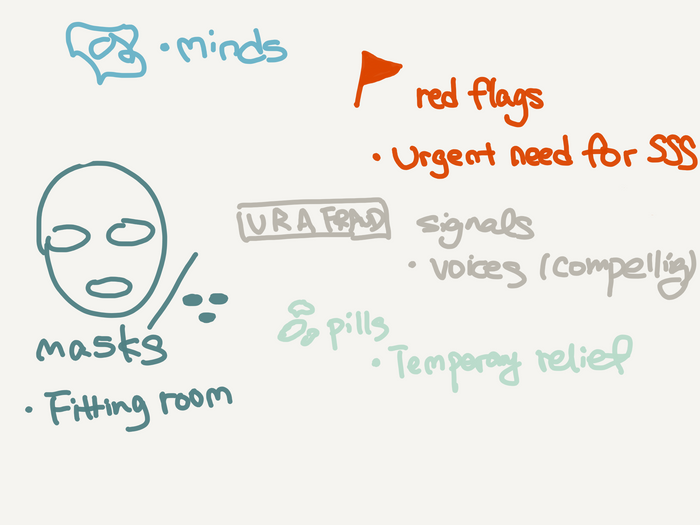 • minds
red flags
• Urgent need for SSS
U R A FRAD
signals
• voices (compellig)
pills
• Temporay relief
masks
• Fitting room